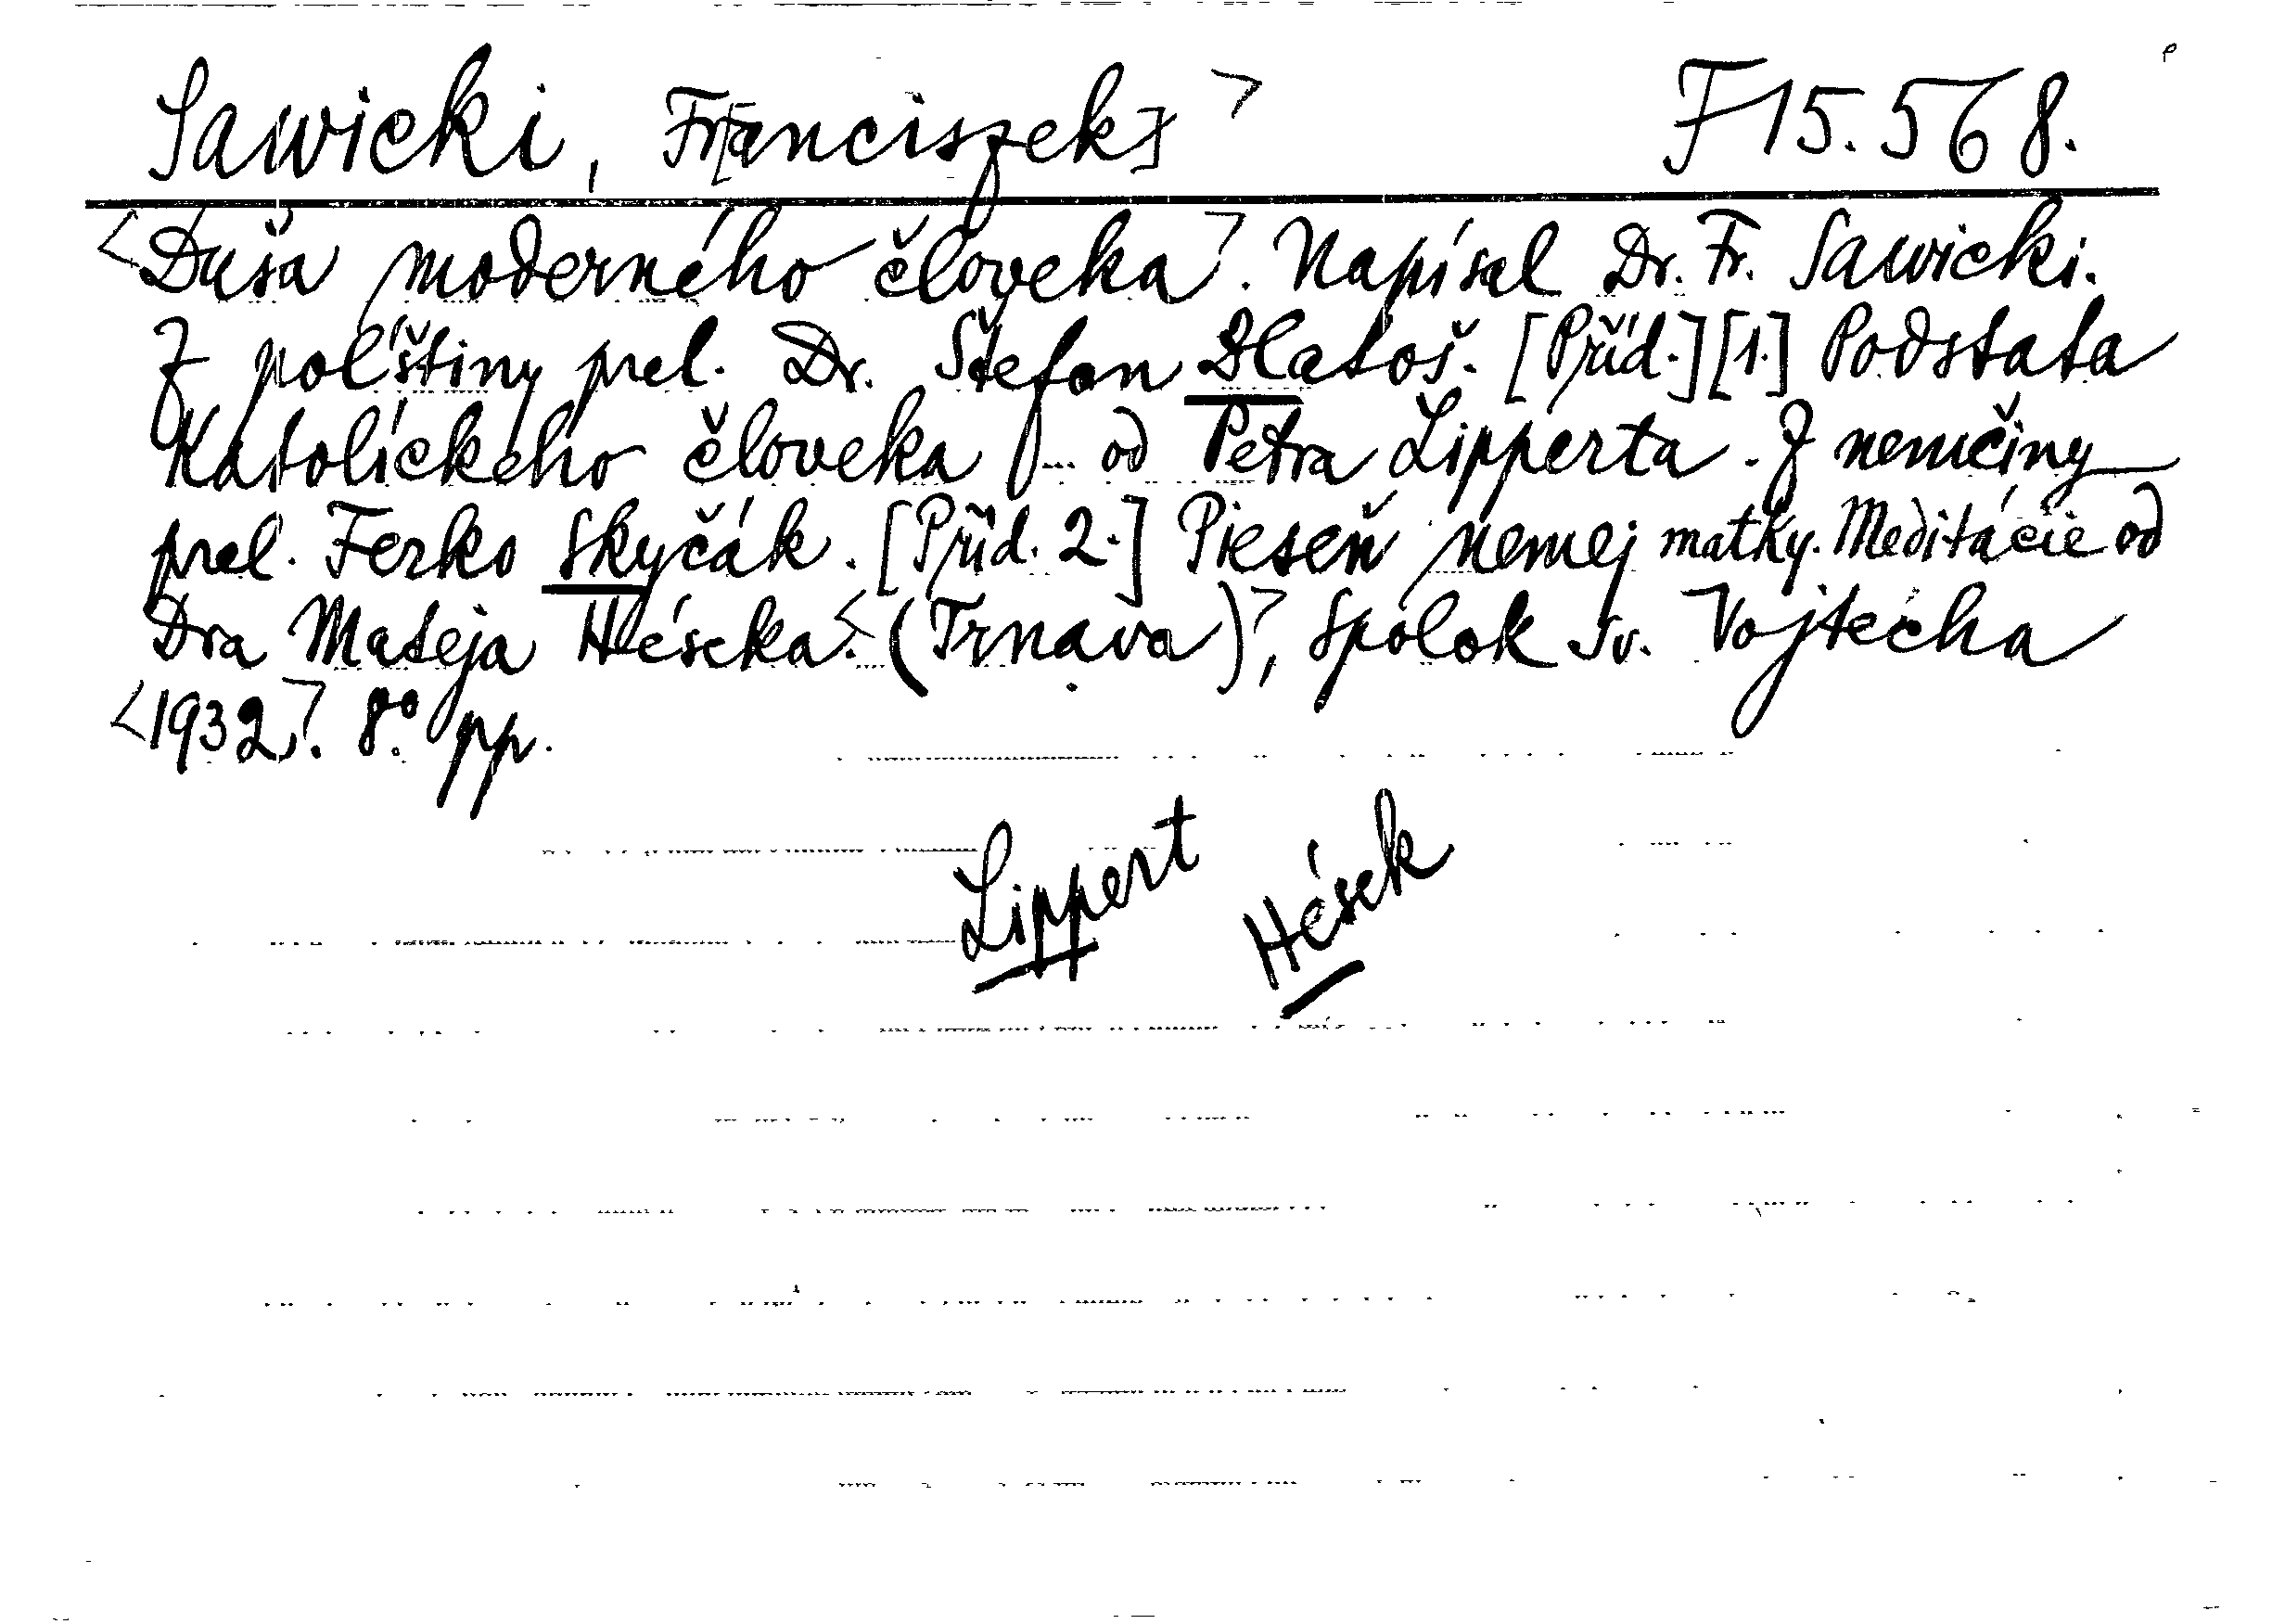 Sawicki, Fr[anciszek] ⌝ F 15.568.
<Duša moderného človeka⌝. Napísal Dr. Fr. Sawicki.
Z polštiny prel. Dr. Štefan Blatoš. [Příd.] [1.] Podstata
Katolíckeho človeka ... od Petra Lipperta. Z nemčiny
prel. Ferko Skyčák. [Příd. 2.] Pieseň nemej matky. Meditácie od
Dra Mateja Héseka.< (Trnava)⌝, Spolok Sv. Vojtecha
<1932⌝. 8° pp.
Lippert Hések